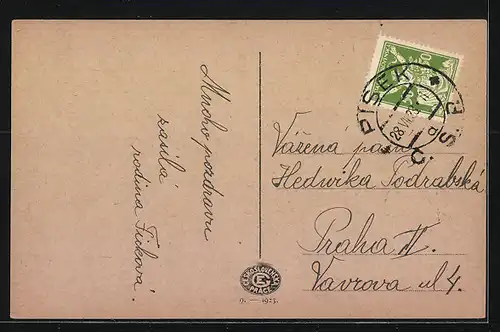 Mnoho pozdravů
zasílá
rodina Ficková.
PÍSEK
Č.S.P.
Vážená paní
Hedwika Podrabská
Praha II.
Vavrova ul 4.
9. — 1923.